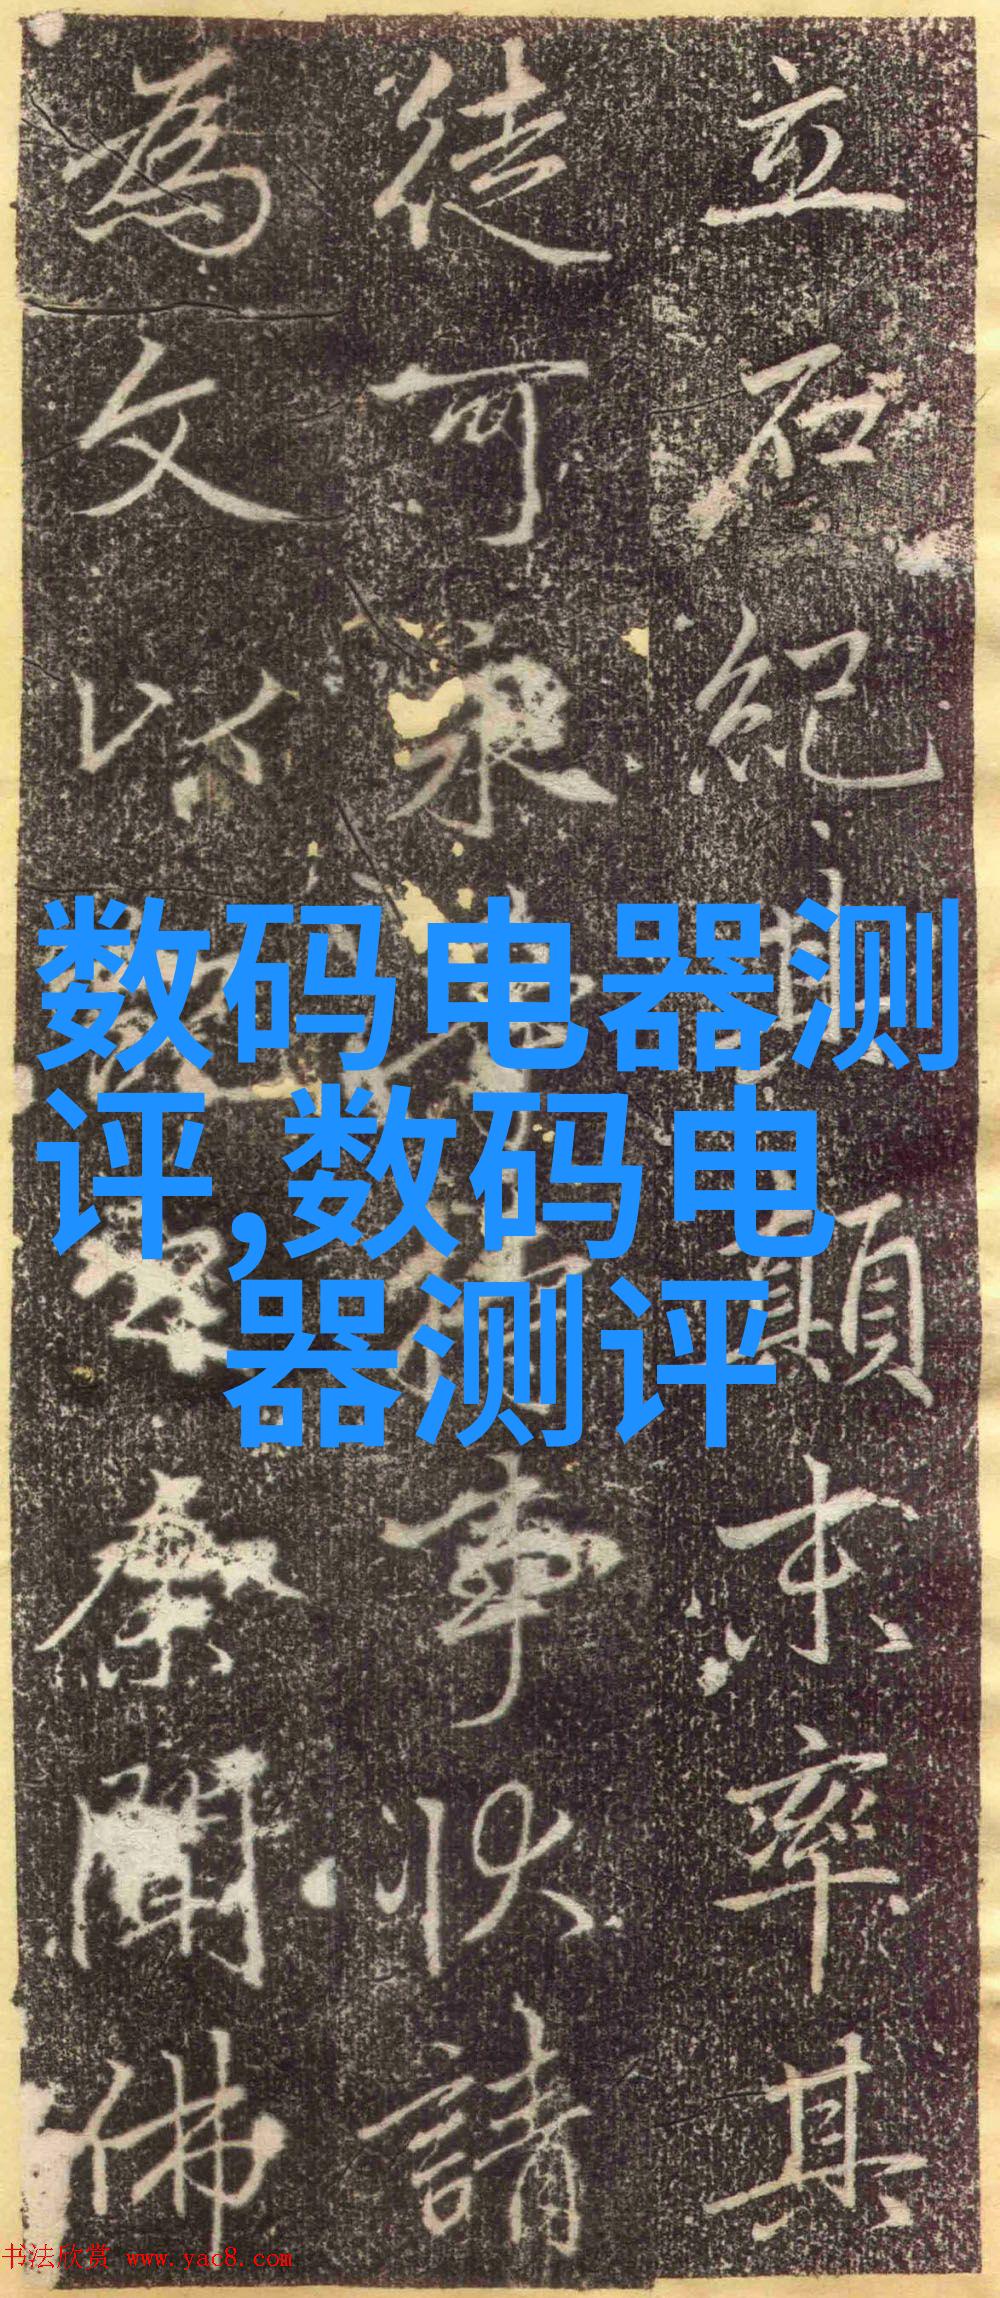 立石紀其顛末率其
徒可永事狀請
為文以余聞佛
数码电器测
评,数码电
器测评
书法欣赏 www.yac8.com